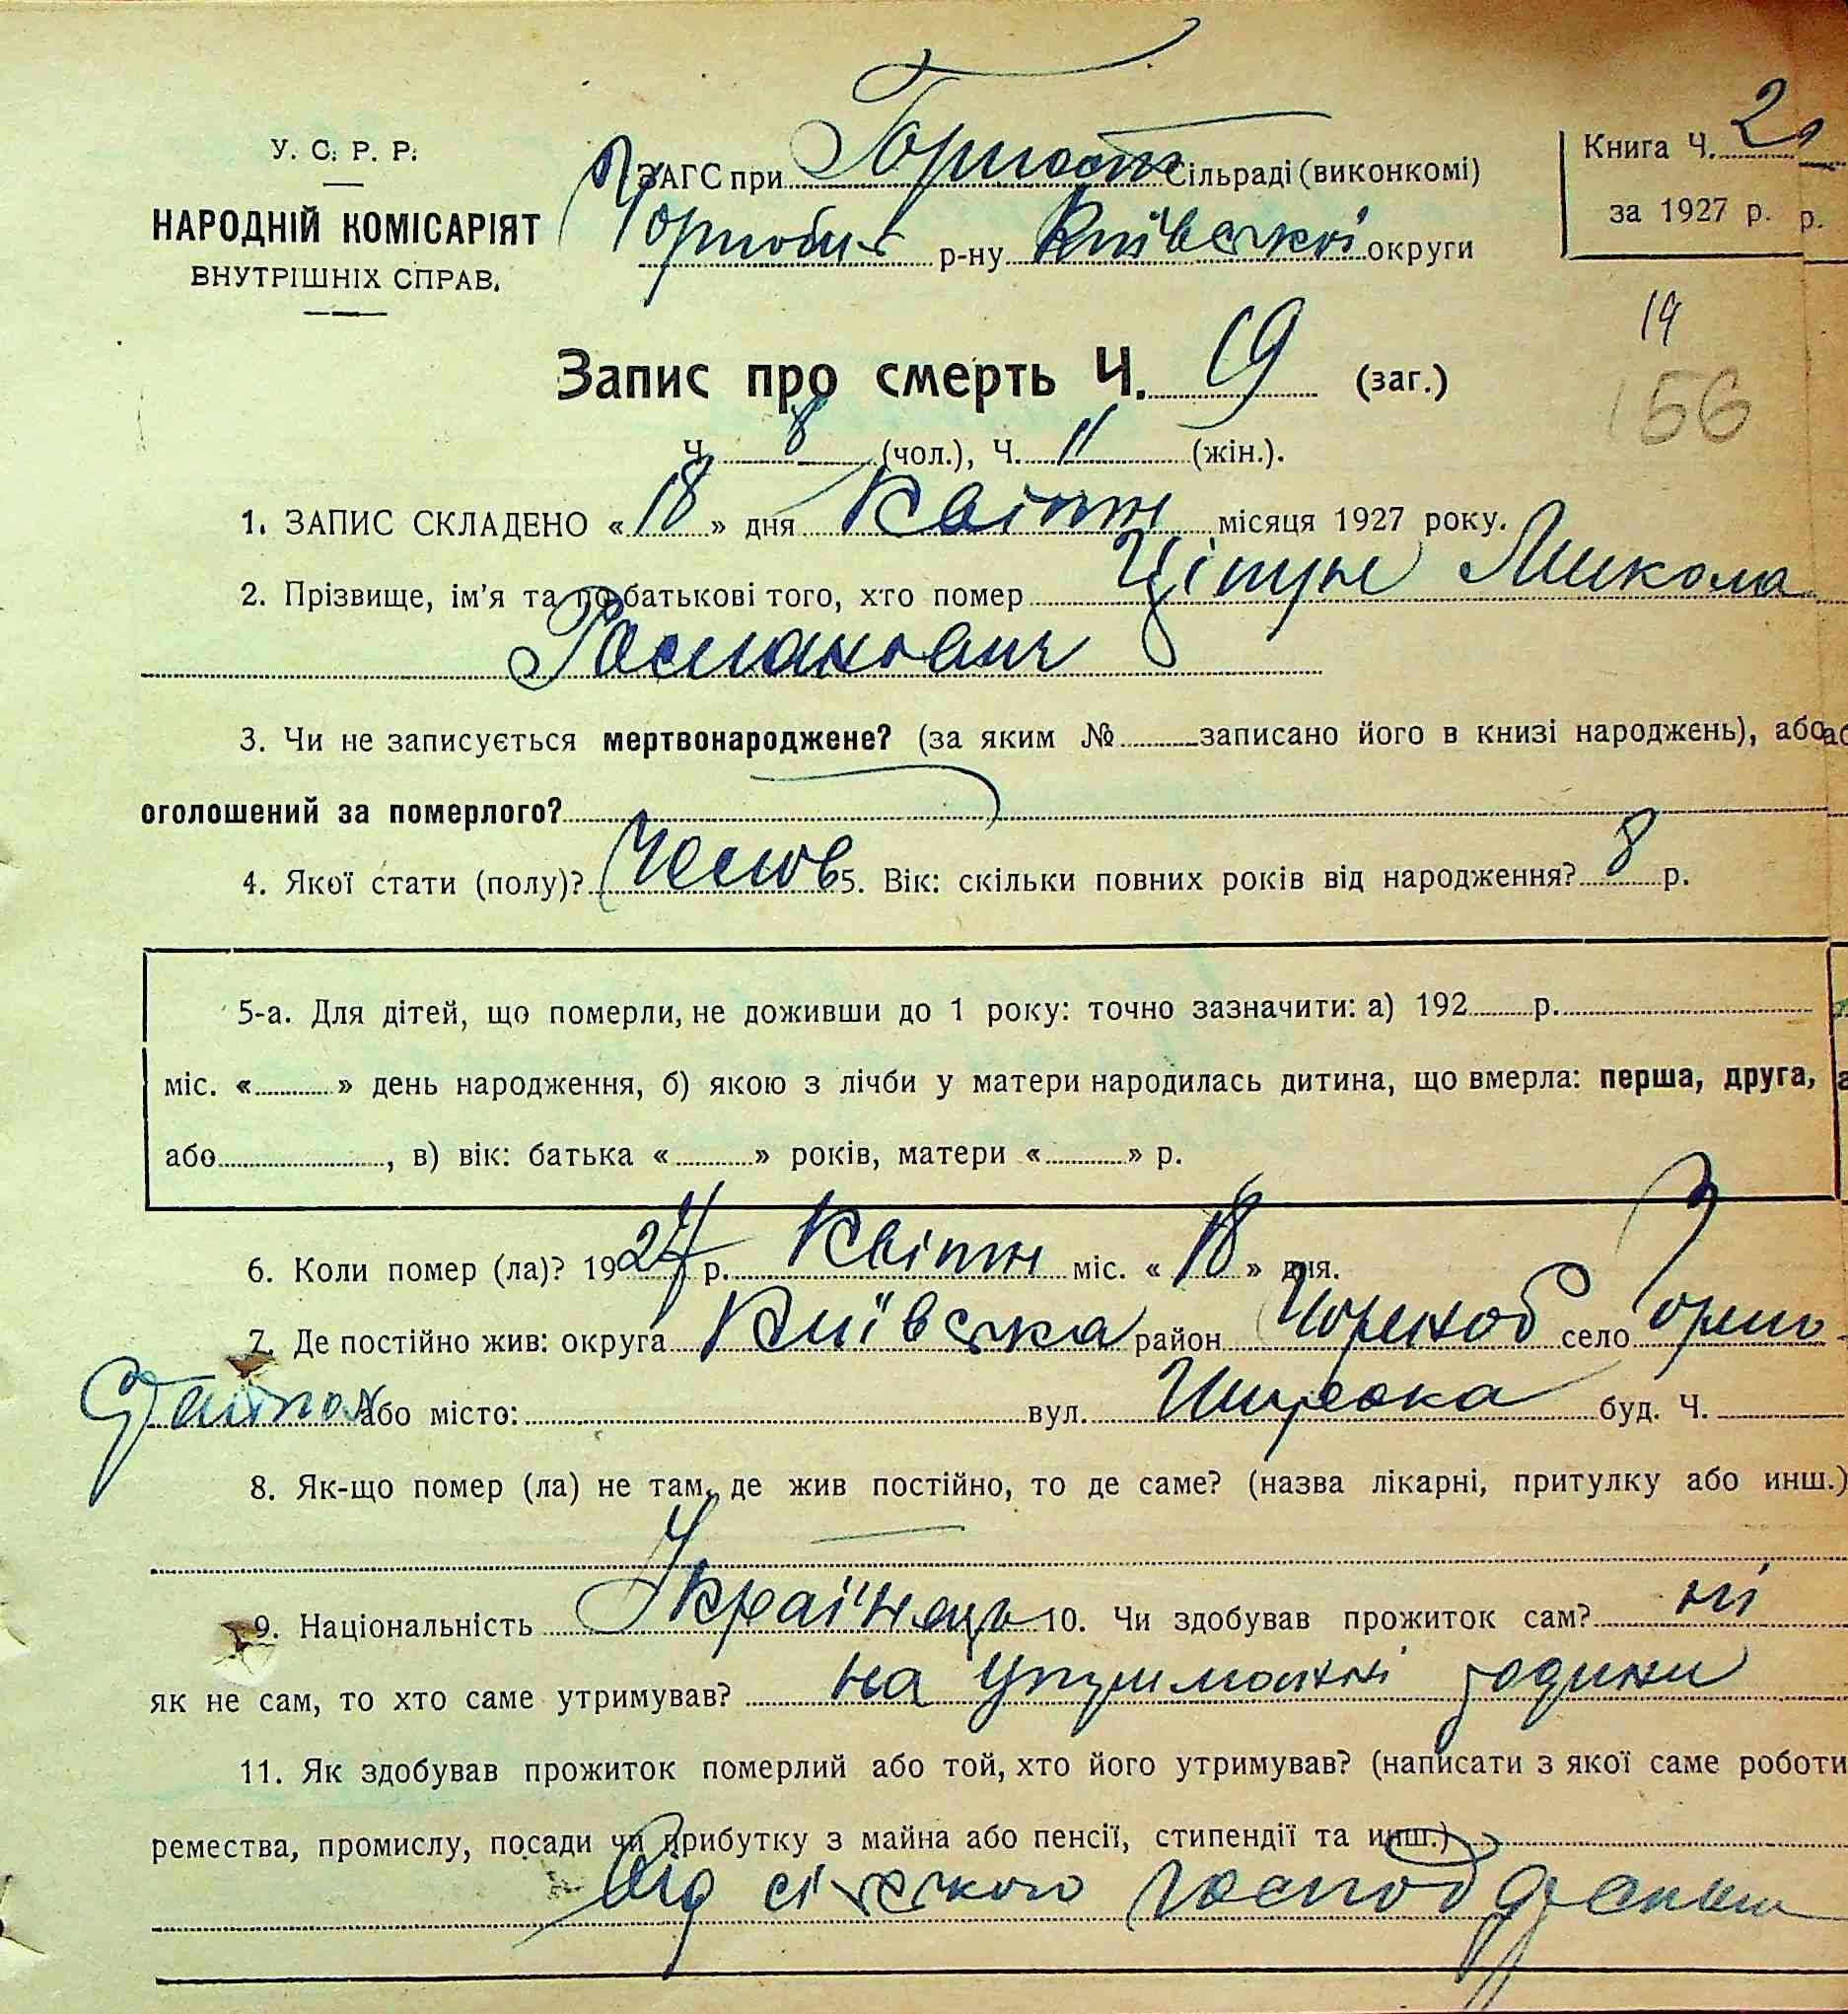 У. С. Р. Р.
НАРОДНІЙ КОМІСАРІЯТ
ВНУТРІШНІХ СПРАВ.
ЗАГС при Горност Сільраді (виконкомі)
Чорнобил р-ну Київської округи
Книга Ч. 2
за 1927 р. р.
19
156
Запис про смерть Ч. 19 (заг.)
Ч. 8 (чол.), Ч. 11 (жін.).
1. ЗАПИС СКЛАДЕНО «18» дня Квітн місяця 1927 року.
2. Прізвище, ім'я та по батькові того, хто помер Микола
3. Чи не записується мертвонароджене? (за яким № записано його в книзі народжень), або
оголошений за померлого?
4. Якої стати (полу)? 5. Вік: скільки повних років від народження? 8 р.
5-а. Для дітей, що померли, не доживши до 1 року: точно зазначити: а) 192 р.
міс. « » день народження, б) якою з лічби у матери народилась дитина, що вмерла: перша, друга,
або , в) вік: батька « » років, матери « » р.
6. Коли помер (ла)? 1927 р. Квітн міс. «18» дня.
7. Де постійно жив: округа Київська район Чорноб село Горно
стайпол або місто: вул. Широка буд. Ч.
8. Як-що помер (ла) не там, де жив постійно, то де саме? (назва лікарні, притулку або инш.)
9. Національність Українець 10. Чи здобував прожиток сам? ні
як не сам, то хто саме утримував? на утриманні родини
11. Як здобував прожиток померлий або той, хто його утримував? (написати з якої саме роботи
ремества, промислу, посади чи прибутку з майна або пенсії, стипендії та инш.)
від сільського господарства